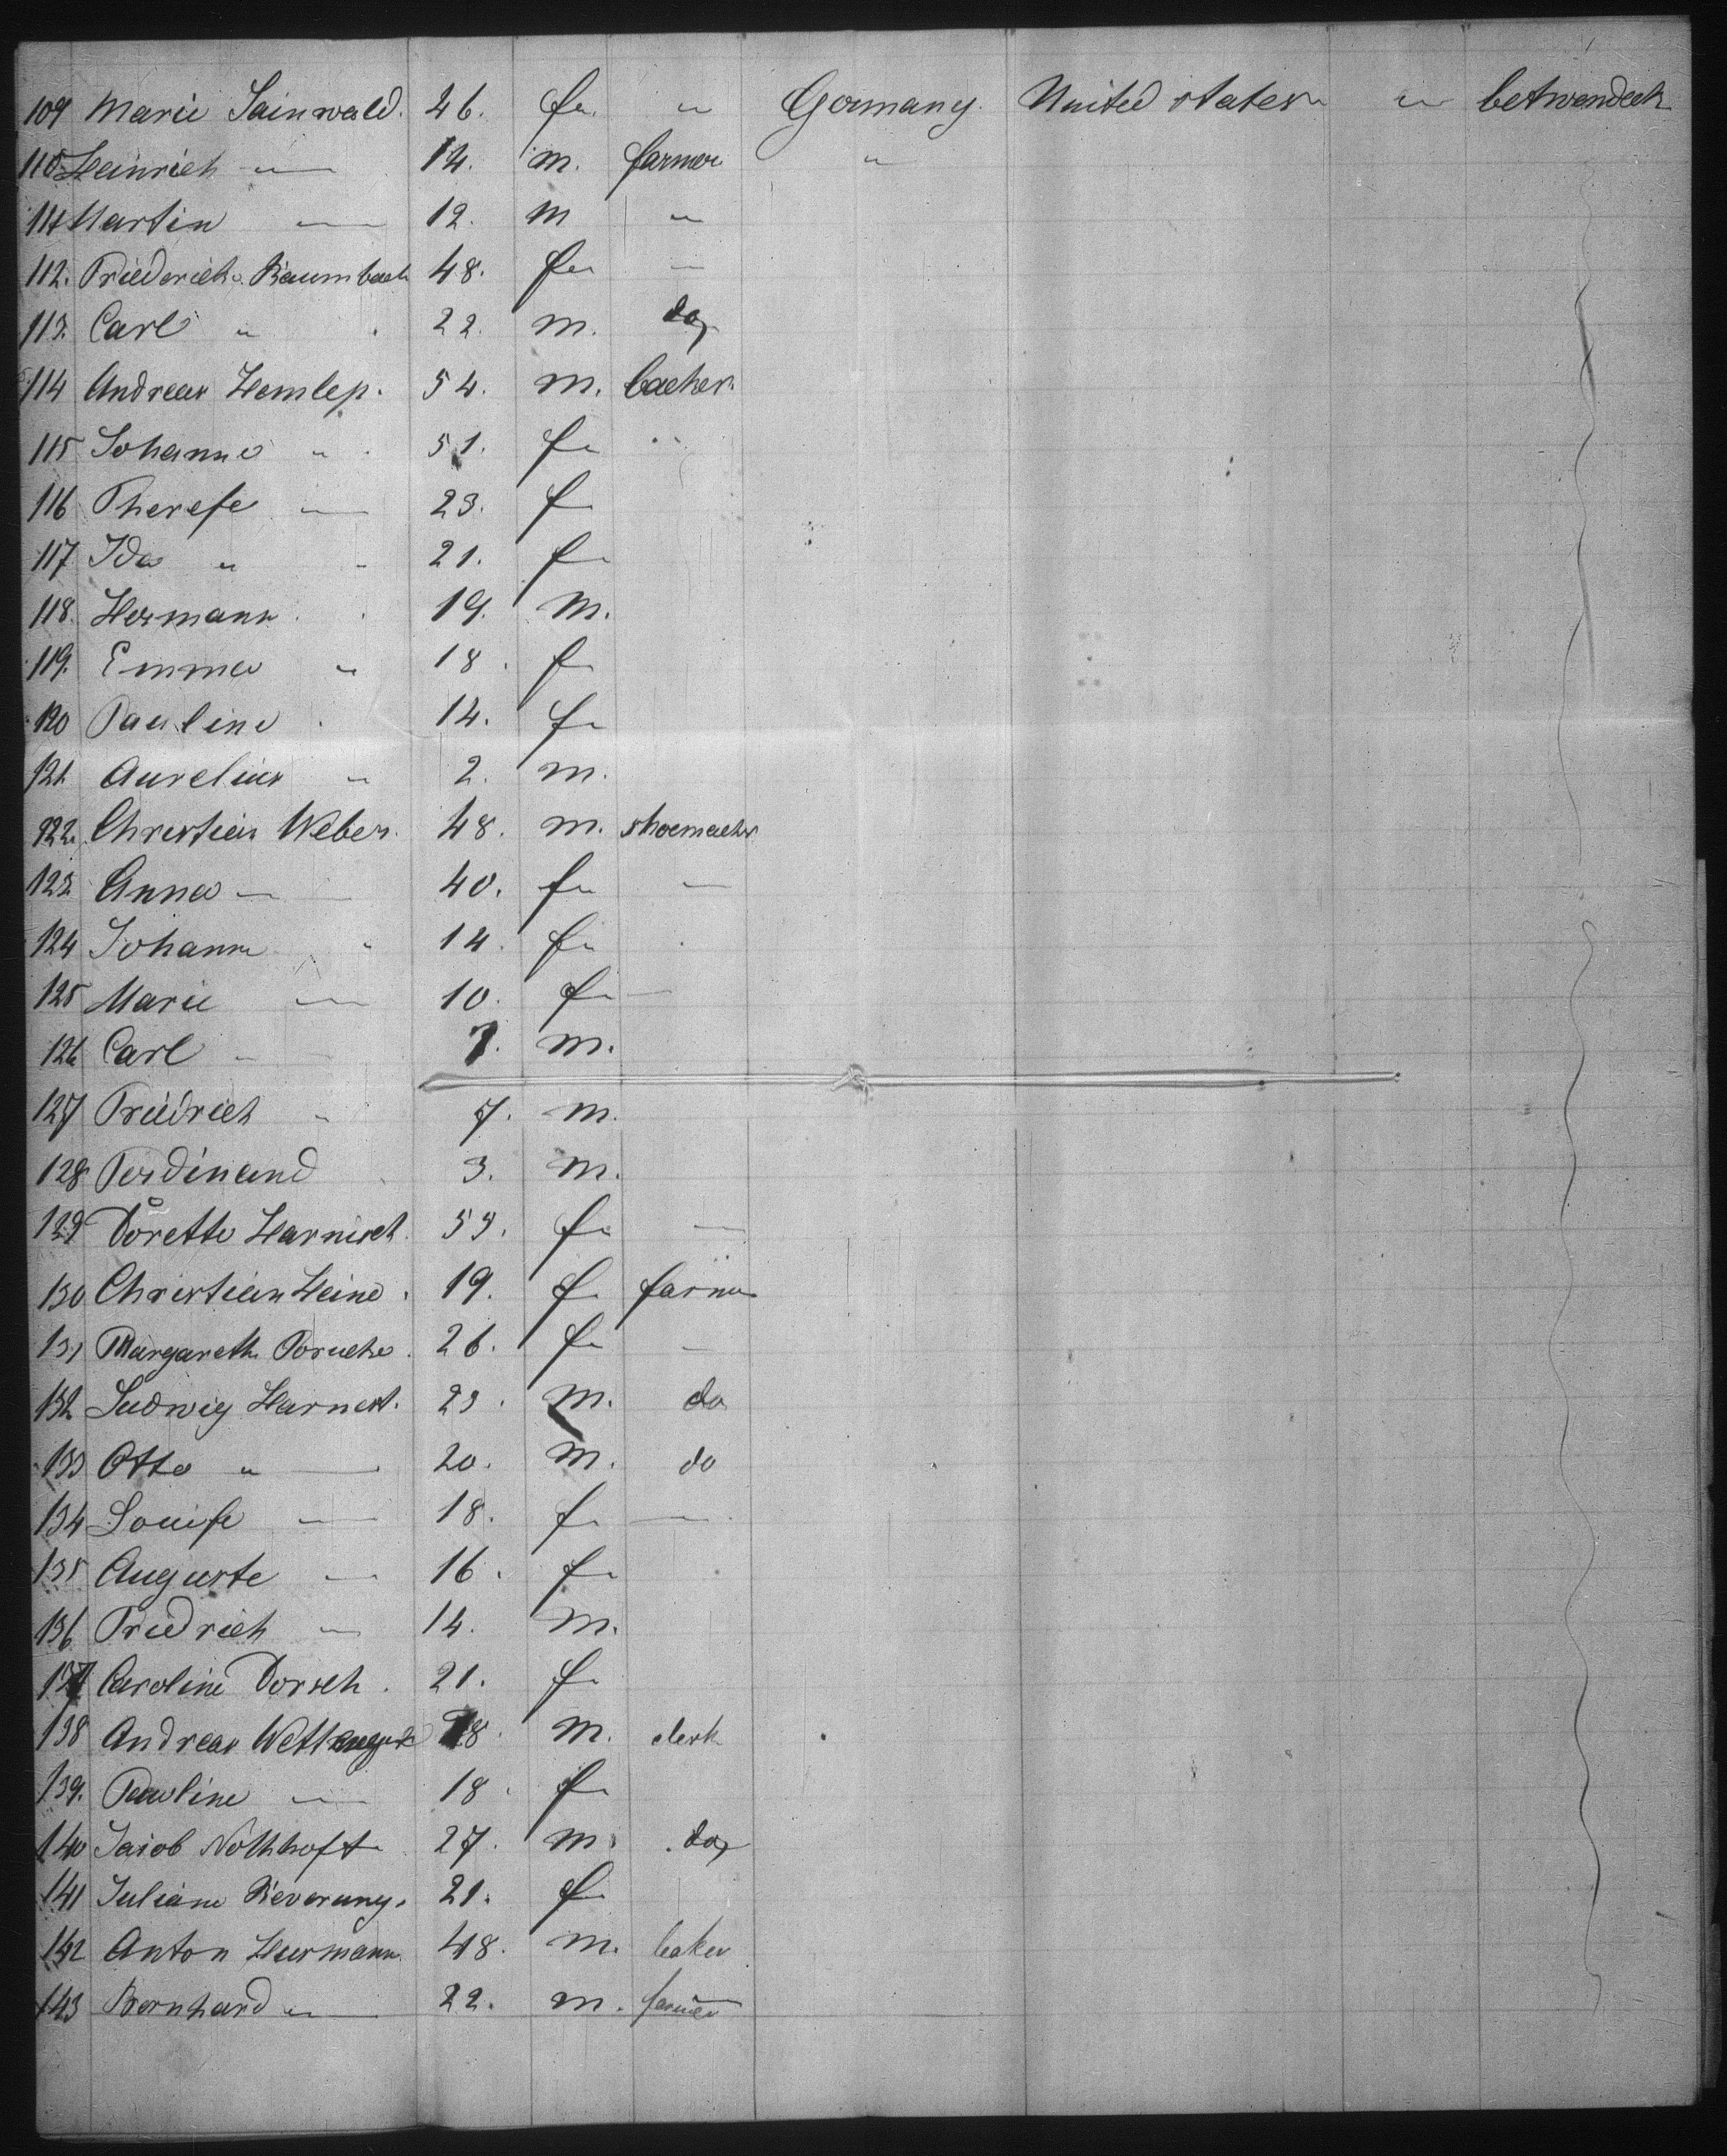 109 Marie Sainwald. 26. fe. " Germany. United states " betwendeck
110 Heinrich " 14. m. farmer "
111 Martin " 12. m "
112. Friederich. Baumbach 48. fe "
113. Carl " 22. m. do
114 Andreas Hemlep. 54. m. backer
115 Johanne " 51. fe "
116 Therese " 23. f
117 Ida " 21. fe
118. Hermann 19. m.
119. Emma " 18. fe
120 Pauline 14. fe
121 Aurelius " 2. m.
122. Christian Weber. 48. m. shoemacher
123 Anna " 40. fe "
124 Johann " 14. fe
125 Marie " 10. fe
126 Carl " 7. m.
127 Friedrich " 7. m.
128 Ferdinand 3. m.
129 Dorette Harnisch. 59. fe "
130 Christian Heine. 19. f farmer
131 Margareth 26. fe "
132 Ludwig Harnest. 23. m. do
133 Otto " 20. m. do
134 Louise " 18. f. "
135 Auguste " 16. fe
136 Friedrich " 14. m.
137 Caroline Dorsch. 21. f
138 Andreas 18. m. clerk
139. Pauline " 18. fe
140 Jacob Nothhoft 27. m. do
141 Juliane Beverung. 21. f
142 Anton Heermann. 48. m. baker
143 Bernhard " 22. m. farmer